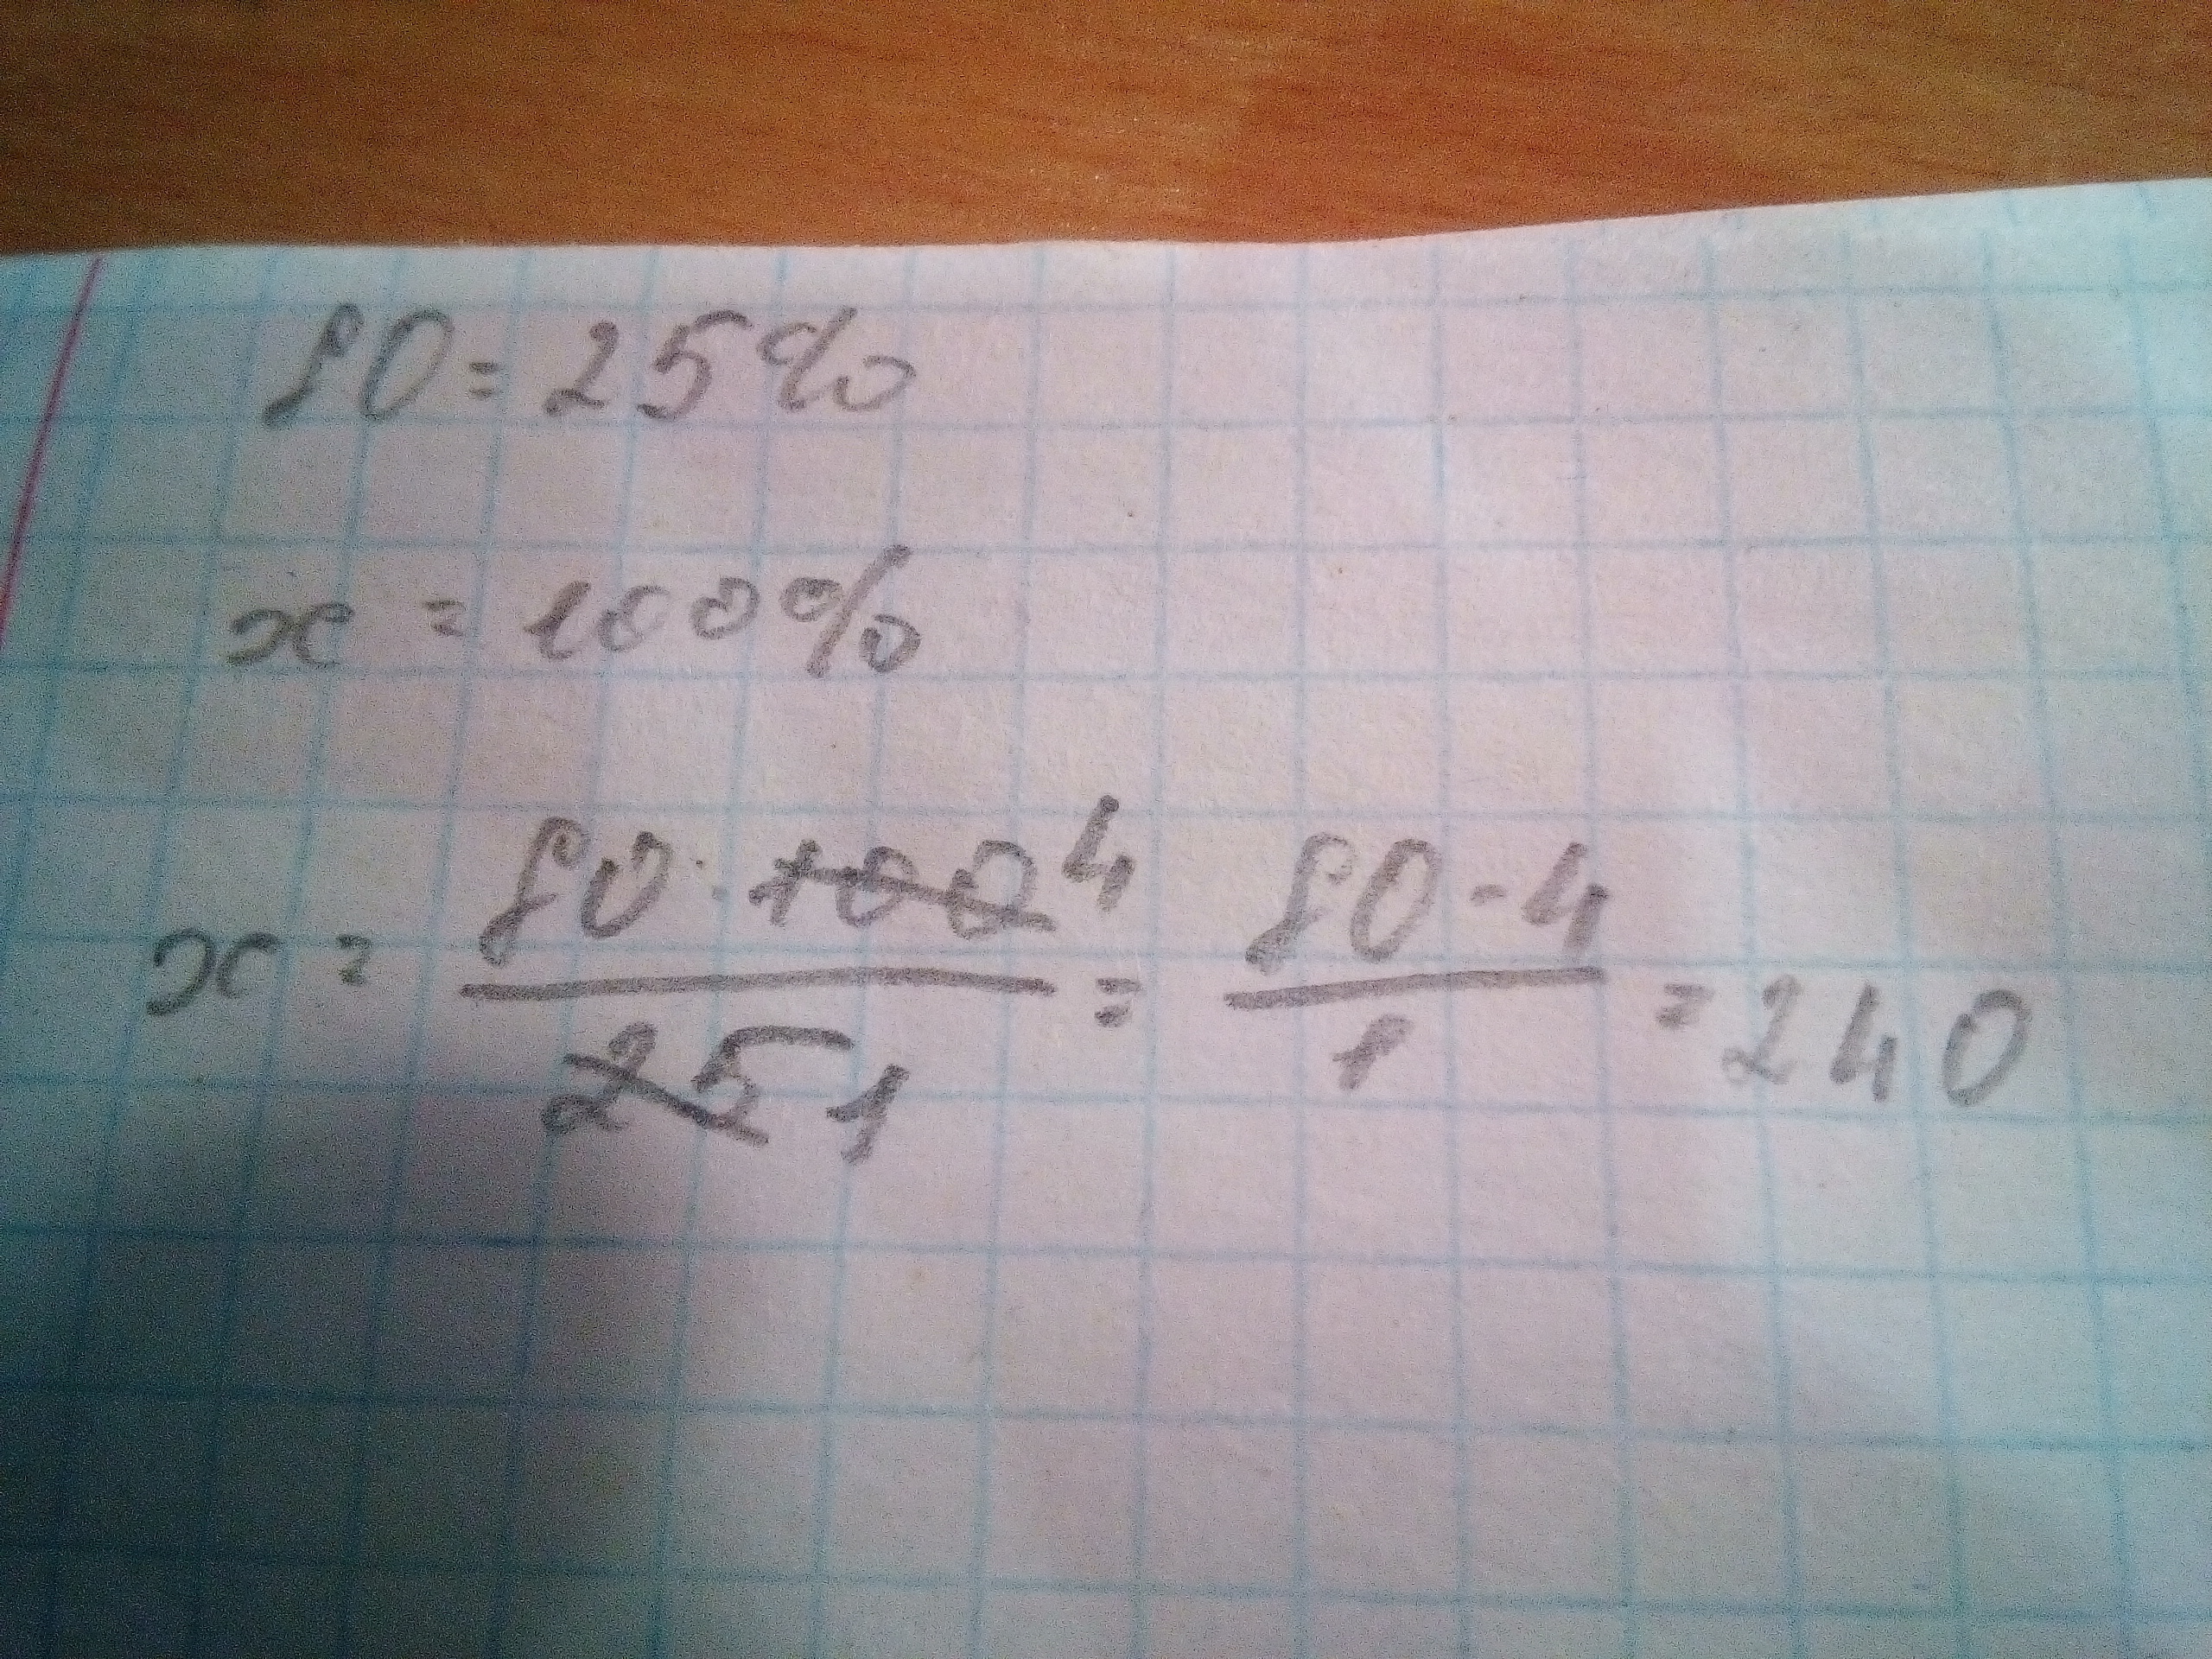 80 = 25%
x = 100%
x = (80 · 100 4)/(25 1) = (80 · 4)/1 = 240